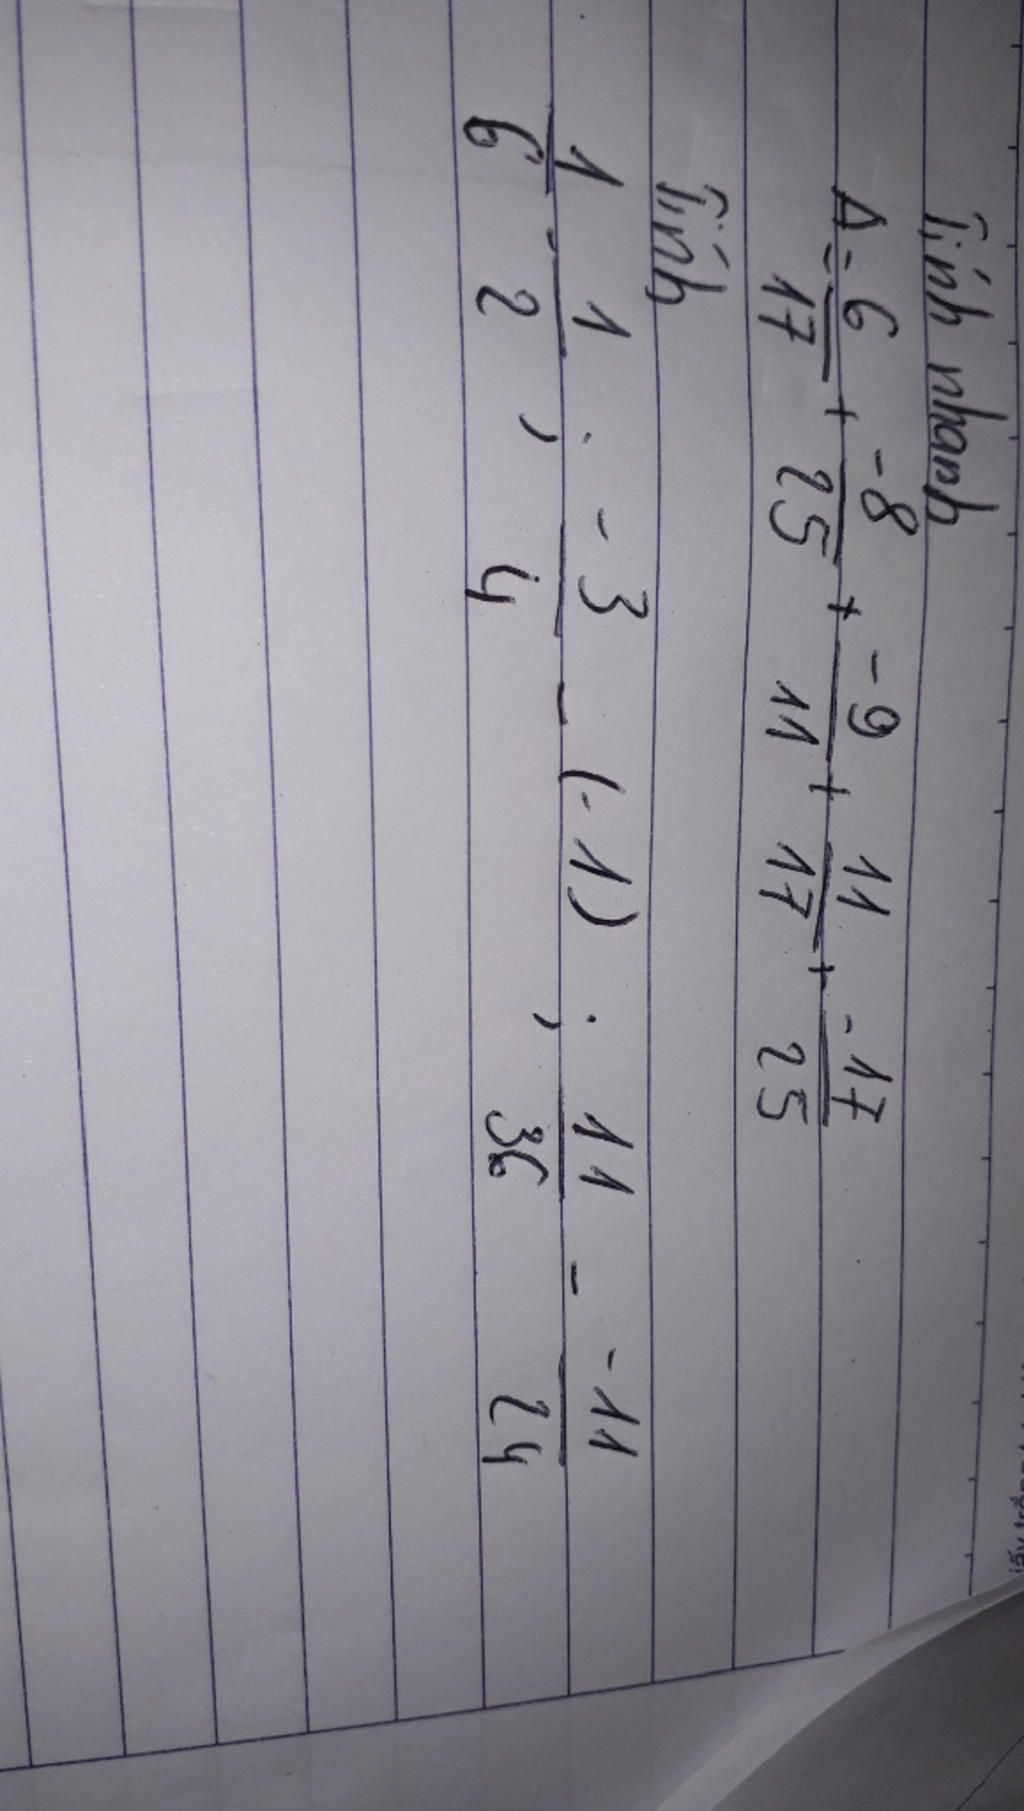 Tính nhanh
A = 6/17 + -8/25 + -9/11 + 11/17 + -17/25
Tính
1/6 - 1/2 ; -3/4 - (-1) ; 11/36 - -11/24